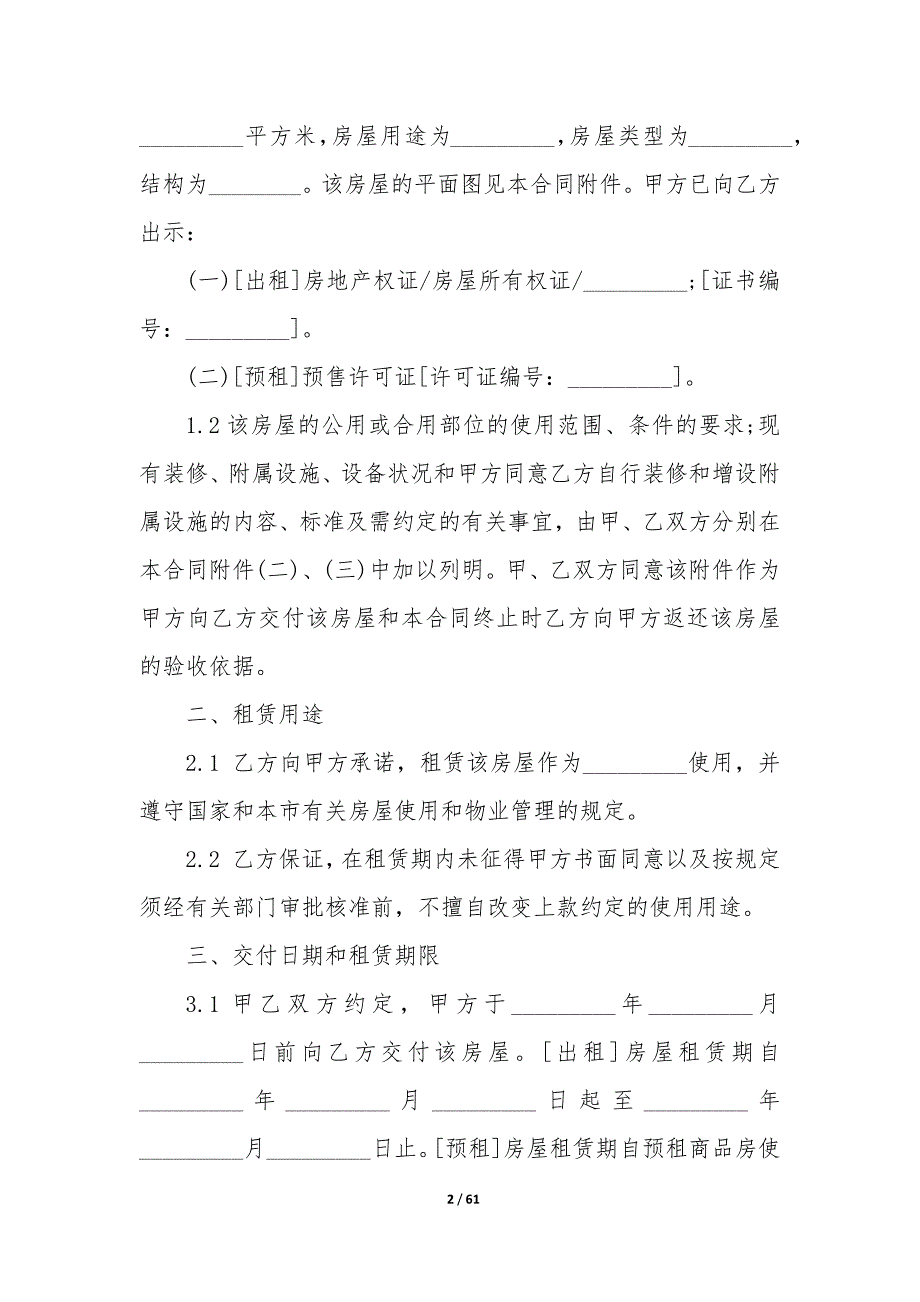 _________平方米,房屋用途为_________,房屋类型为_________,
结构为________。该房屋的平面图见本合同附件。甲方已向乙方
出示:
(一)[出租]房地产权证/房屋所有权证/_________;[证书编
号:_________]。
(二)[预租]预售许可证[许可证编号:_________]。
1.2 该房屋的公用或合用部位的使用范围、条件的要求;现
有装修、附属设施、设备状况和甲方同意乙方自行装修和增设附
属设施的内容、标准及需约定的有关事宜，由甲、乙双方分别在
本合同附件(二)、(三)中加以列明。甲、乙双方同意该附件作为
甲方向乙方交付该房屋和本合同终止时乙方向甲方返还该房屋
的验收依据。
二、租赁用途
2.1 乙方向甲方承诺，租赁该房屋作为_________使用，并
遵守国家和本市有关房屋使用和物业管理的规定。
2.2 乙方保证，在租赁期内未征得甲方书面同意以及按规定
须经有关部门审批核准前，不擅自改变上款约定的使用用途。
三、交付日期和租赁期限
3.1 甲乙双方约定，甲方于_________年_________月
_________日前向乙方交付该房屋。[出租]房屋租赁期自
_________年_________月_________日起至_________年
_________月_________日止。[预租]房屋租赁期自预租商品房使
2 / 61